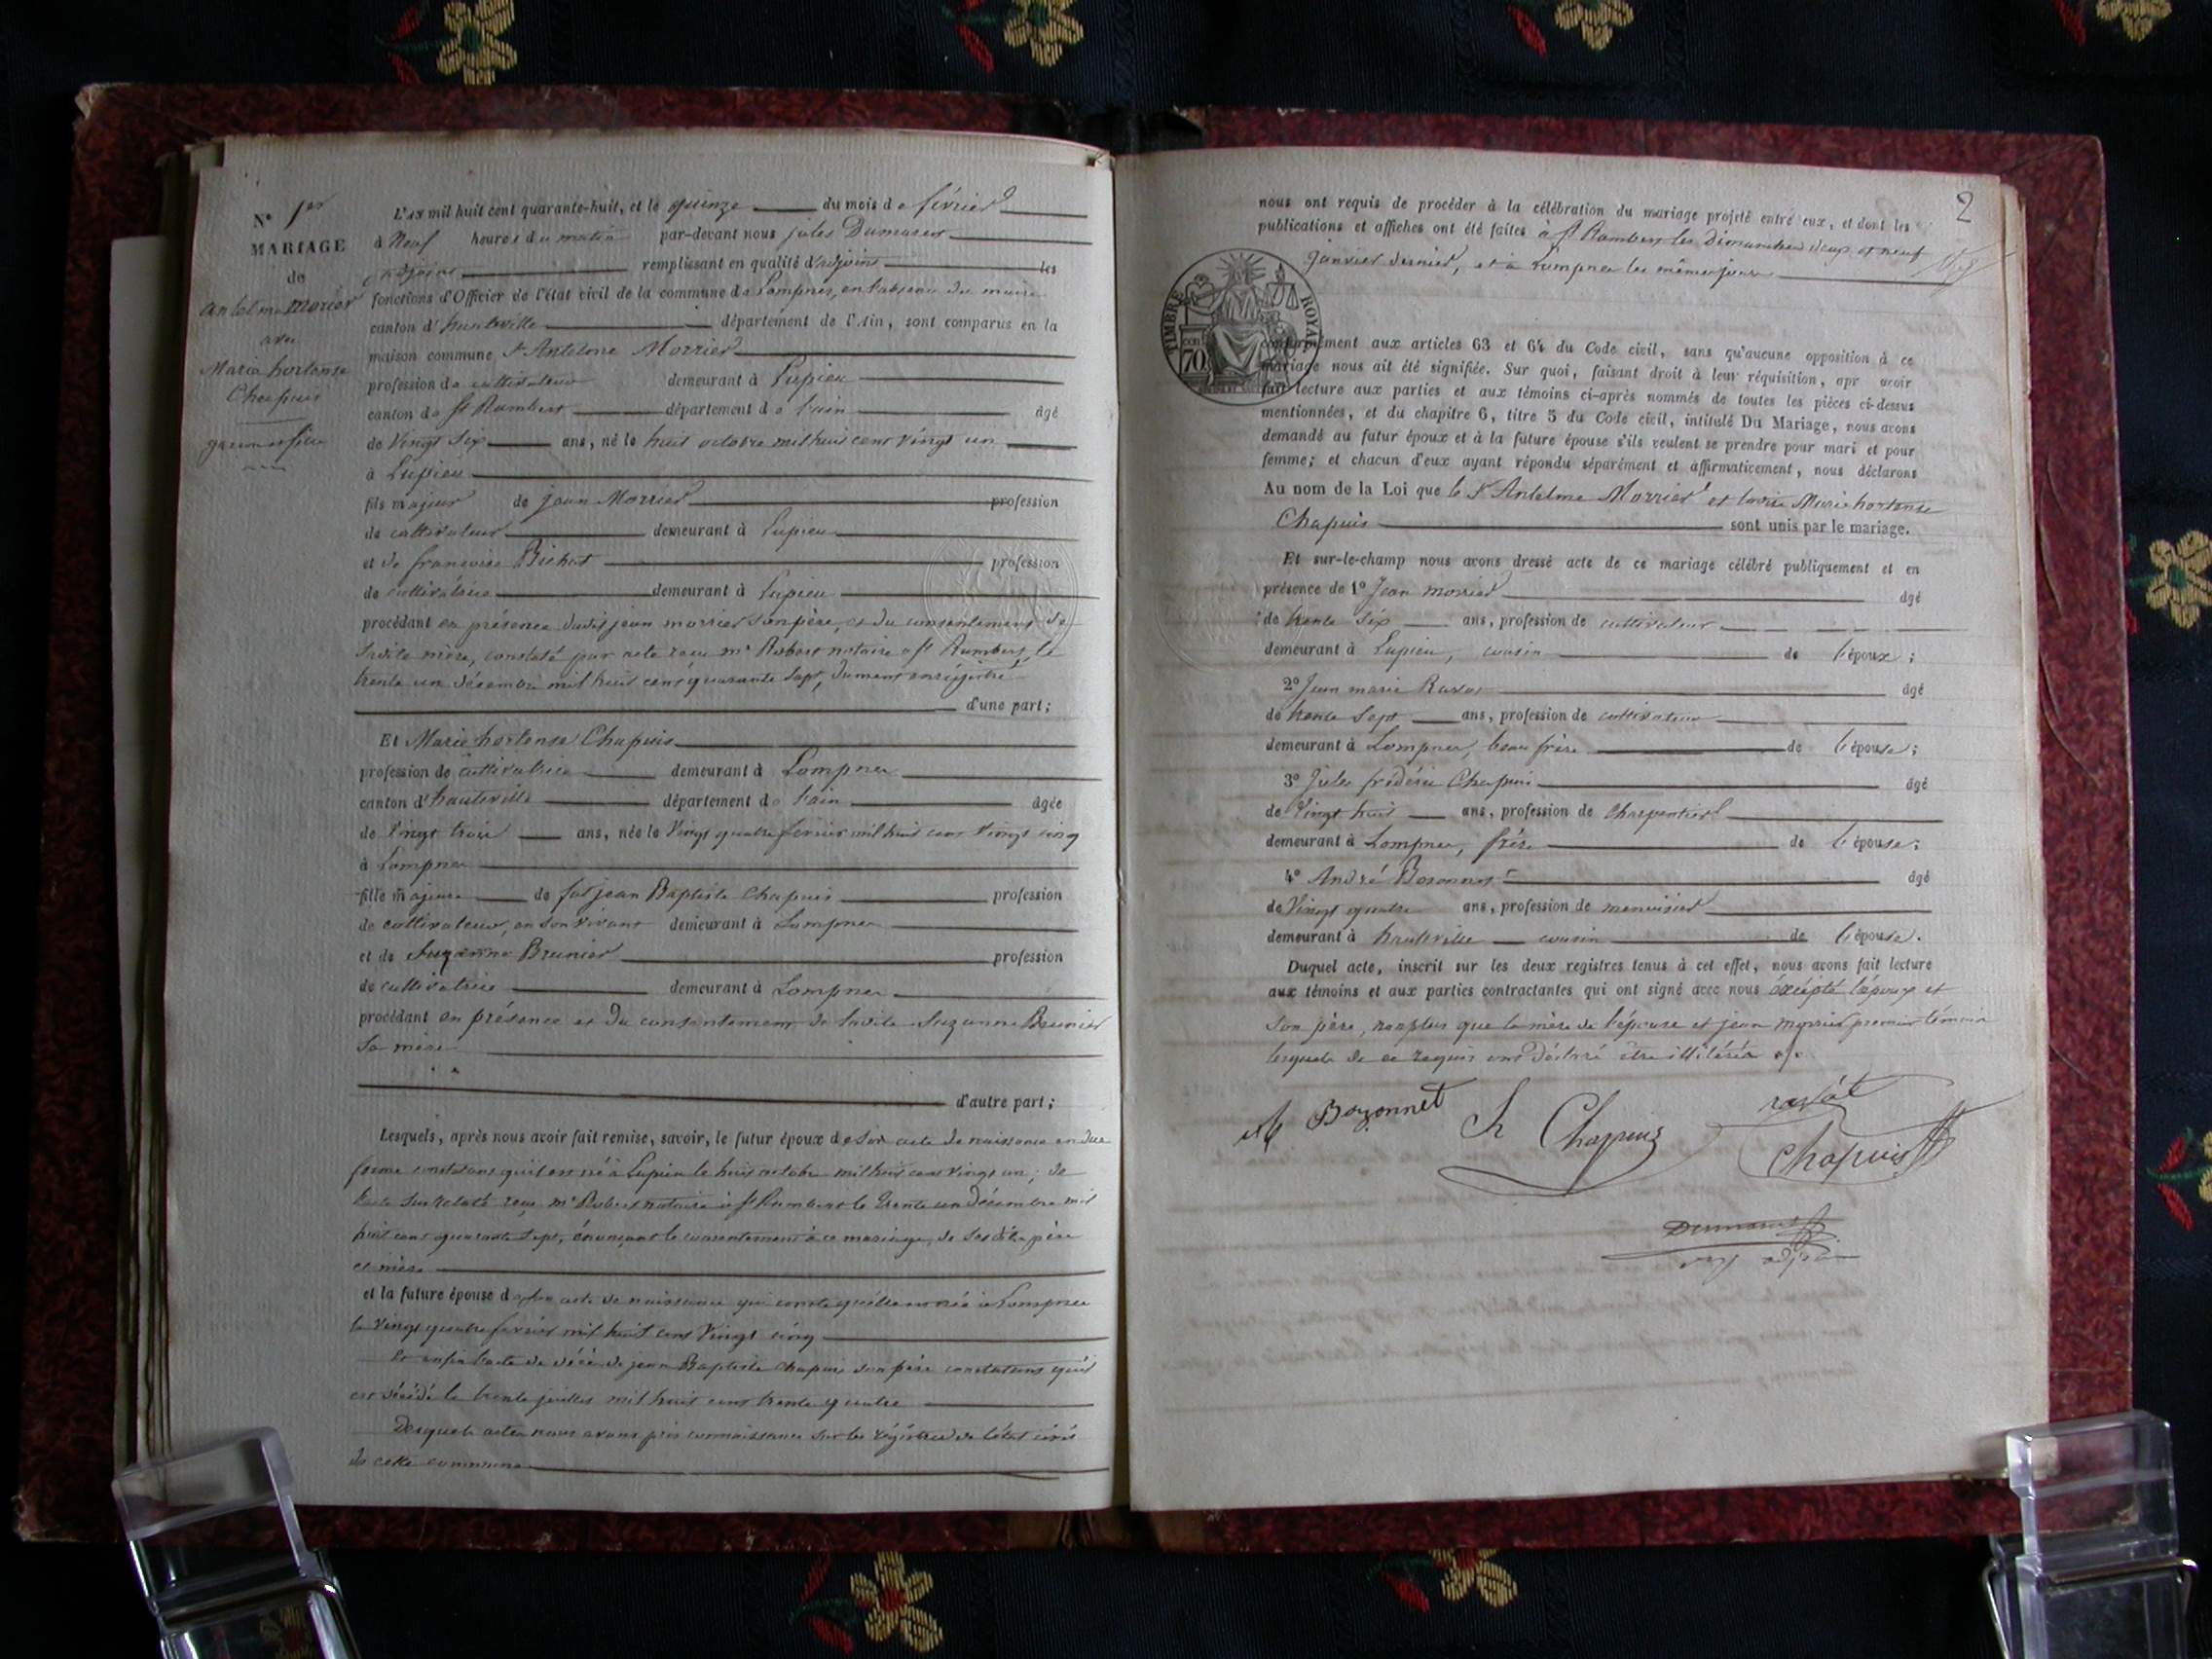 N° 1er
MARIAGE
de
Antelme Morier
avec
Marie hortense
Chapuis
L'AN mil huit cent quarante-huit, et le quinze du mois de février
à Neuf heures du matin par-devant nous jules Dumarest
adjoint remplissant en qualité d'adjoint les
fonctions d'Officier de l'état civil de la commune de Lompnes, en l'absence du maire
canton d'hauteville département de l'Ain, sont comparus en la
maison commune Sr Antelme Morrier
profession de cultivateur demeurant à Lupieu
canton de St Rambert département de l'ain âgé
de Vingt Six ans, né le huit octobre mil huit cent vingt un
à Lupieu
fils majeur de jean Morrier profession
de cultivateur demeurant à Lupieu
et de françoise Bichat profession
de cultivatrice demeurant à Lupieu
procédant en présence dudit jean morrier son père, et du consentement de
sadite mère, constaté par acte reçu me Robert notaire à St Rambert, le
trente un décembre mil huit cent quarante Sept, dument enrégistré
d'une part;
Et Marie hortense Chapuis
profession de cultivatrice demeurant à Lompnes
canton d'hauteville département de l'ain âgée
de Vingt trois ans, née le Vingt quatre février mil huit cent Vingt cinq
à Lompnes
fille majeure de fut jean Baptiste Chapuis profession
de cultivateur, en son vivant demeurant à Lompnes
et de Suzanne Brunier profession
de cultivatrice demeurant à Lompnes
procédant en présence et du consentement de ladite Suzanne Brunier
sa mère
d'autre part;
Lesquels, après nous avoir fait remise, savoir, le futur époux de son acte de naissance en due
forme constatant qu'il est né à Lupieu le huit octobre mil huit cent vingt un; de
reçu me Robert notaire à St Rambert le trente un décembre mil
huit cent quarante Sept, énonçant le consentement à ce mariage, de ses dits père
et mère
et la future épouse de son acte de naissance qui constate qu'elle est née à Lompnes
le Vingt quatre février mil huit cent Vingt cinq
Et enfin l'acte de décès de jean Baptiste Chapuis son père constatant qu'il
est décédé le trente juillet mil huit cent trente quatre
Desquels actes nous avons pris connaissance sur les régistres de l'état civil
de cette commune
2
nous ont requis de procéder à la célébration du mariage projeté entre eux, et dont les
publications et affiches ont été faites à St Rambert les dimanches deux et neuf
janvier dernier, et à Lompnes les mêmes jours
TIMBRE ROYAL
70
conformément aux articles 63 et 64 du Code civil, sans qu'aucune opposition à ce
mariage nous ait été signifiée. Sur quoi, faisant droit à leur réquisition, apr avoir
fait lecture aux parties et aux témoins ci-après nommés de toutes les pièces ci-dessus
mentionnées, et du chapitre 6, titre 5 du Code civil, intitulé Du Mariage, nous avons
demandé au futur époux et à la future épouse s'ils veulent se prendre pour mari et pour
femme; et chacun d'eux ayant répondu séparément et affirmativement, nous déclarons
Au nom de la Loi que le Sr Antelme Morrier et Marie hortense
Chapuis sont unis par le mariage.
Et sur-le-champ nous avons dressé acte de ce mariage célébré publiquement et en
présence de 1° Jean morrier âgé
de trente Six ans, profession de cultivateur
demeurant à Lupieu, cousin de l'époux;
2° Jean marie Ravat âgé
de trente Sept ans, profession de cultivateur
demeurant à Lompnes, beau frère de l'épouse;
3° Jules frédéric Chapuis âgé
de Vingt huit ans, profession de Charpentier
demeurant à Lompnes, frère de l'épouse;
4° André Bozonnet âgé
de Vingt quatre ans, profession de menuisier
demeurant à hauteville cousin de l'épouse.
Duquel acte, inscrit sur les deux registres tenus à cet effet, nous avons fait lecture
aux témoins et aux parties contractantes qui ont signé avec nous excepté l'époux et
son père, non plus que la mère de l'épouse et jean morrier premier témoin
lesquels de ce requis ont déclaré être illitérés
Bozonnet
h Chapuis
ravat
Chapuis
Dumarest
adjoint